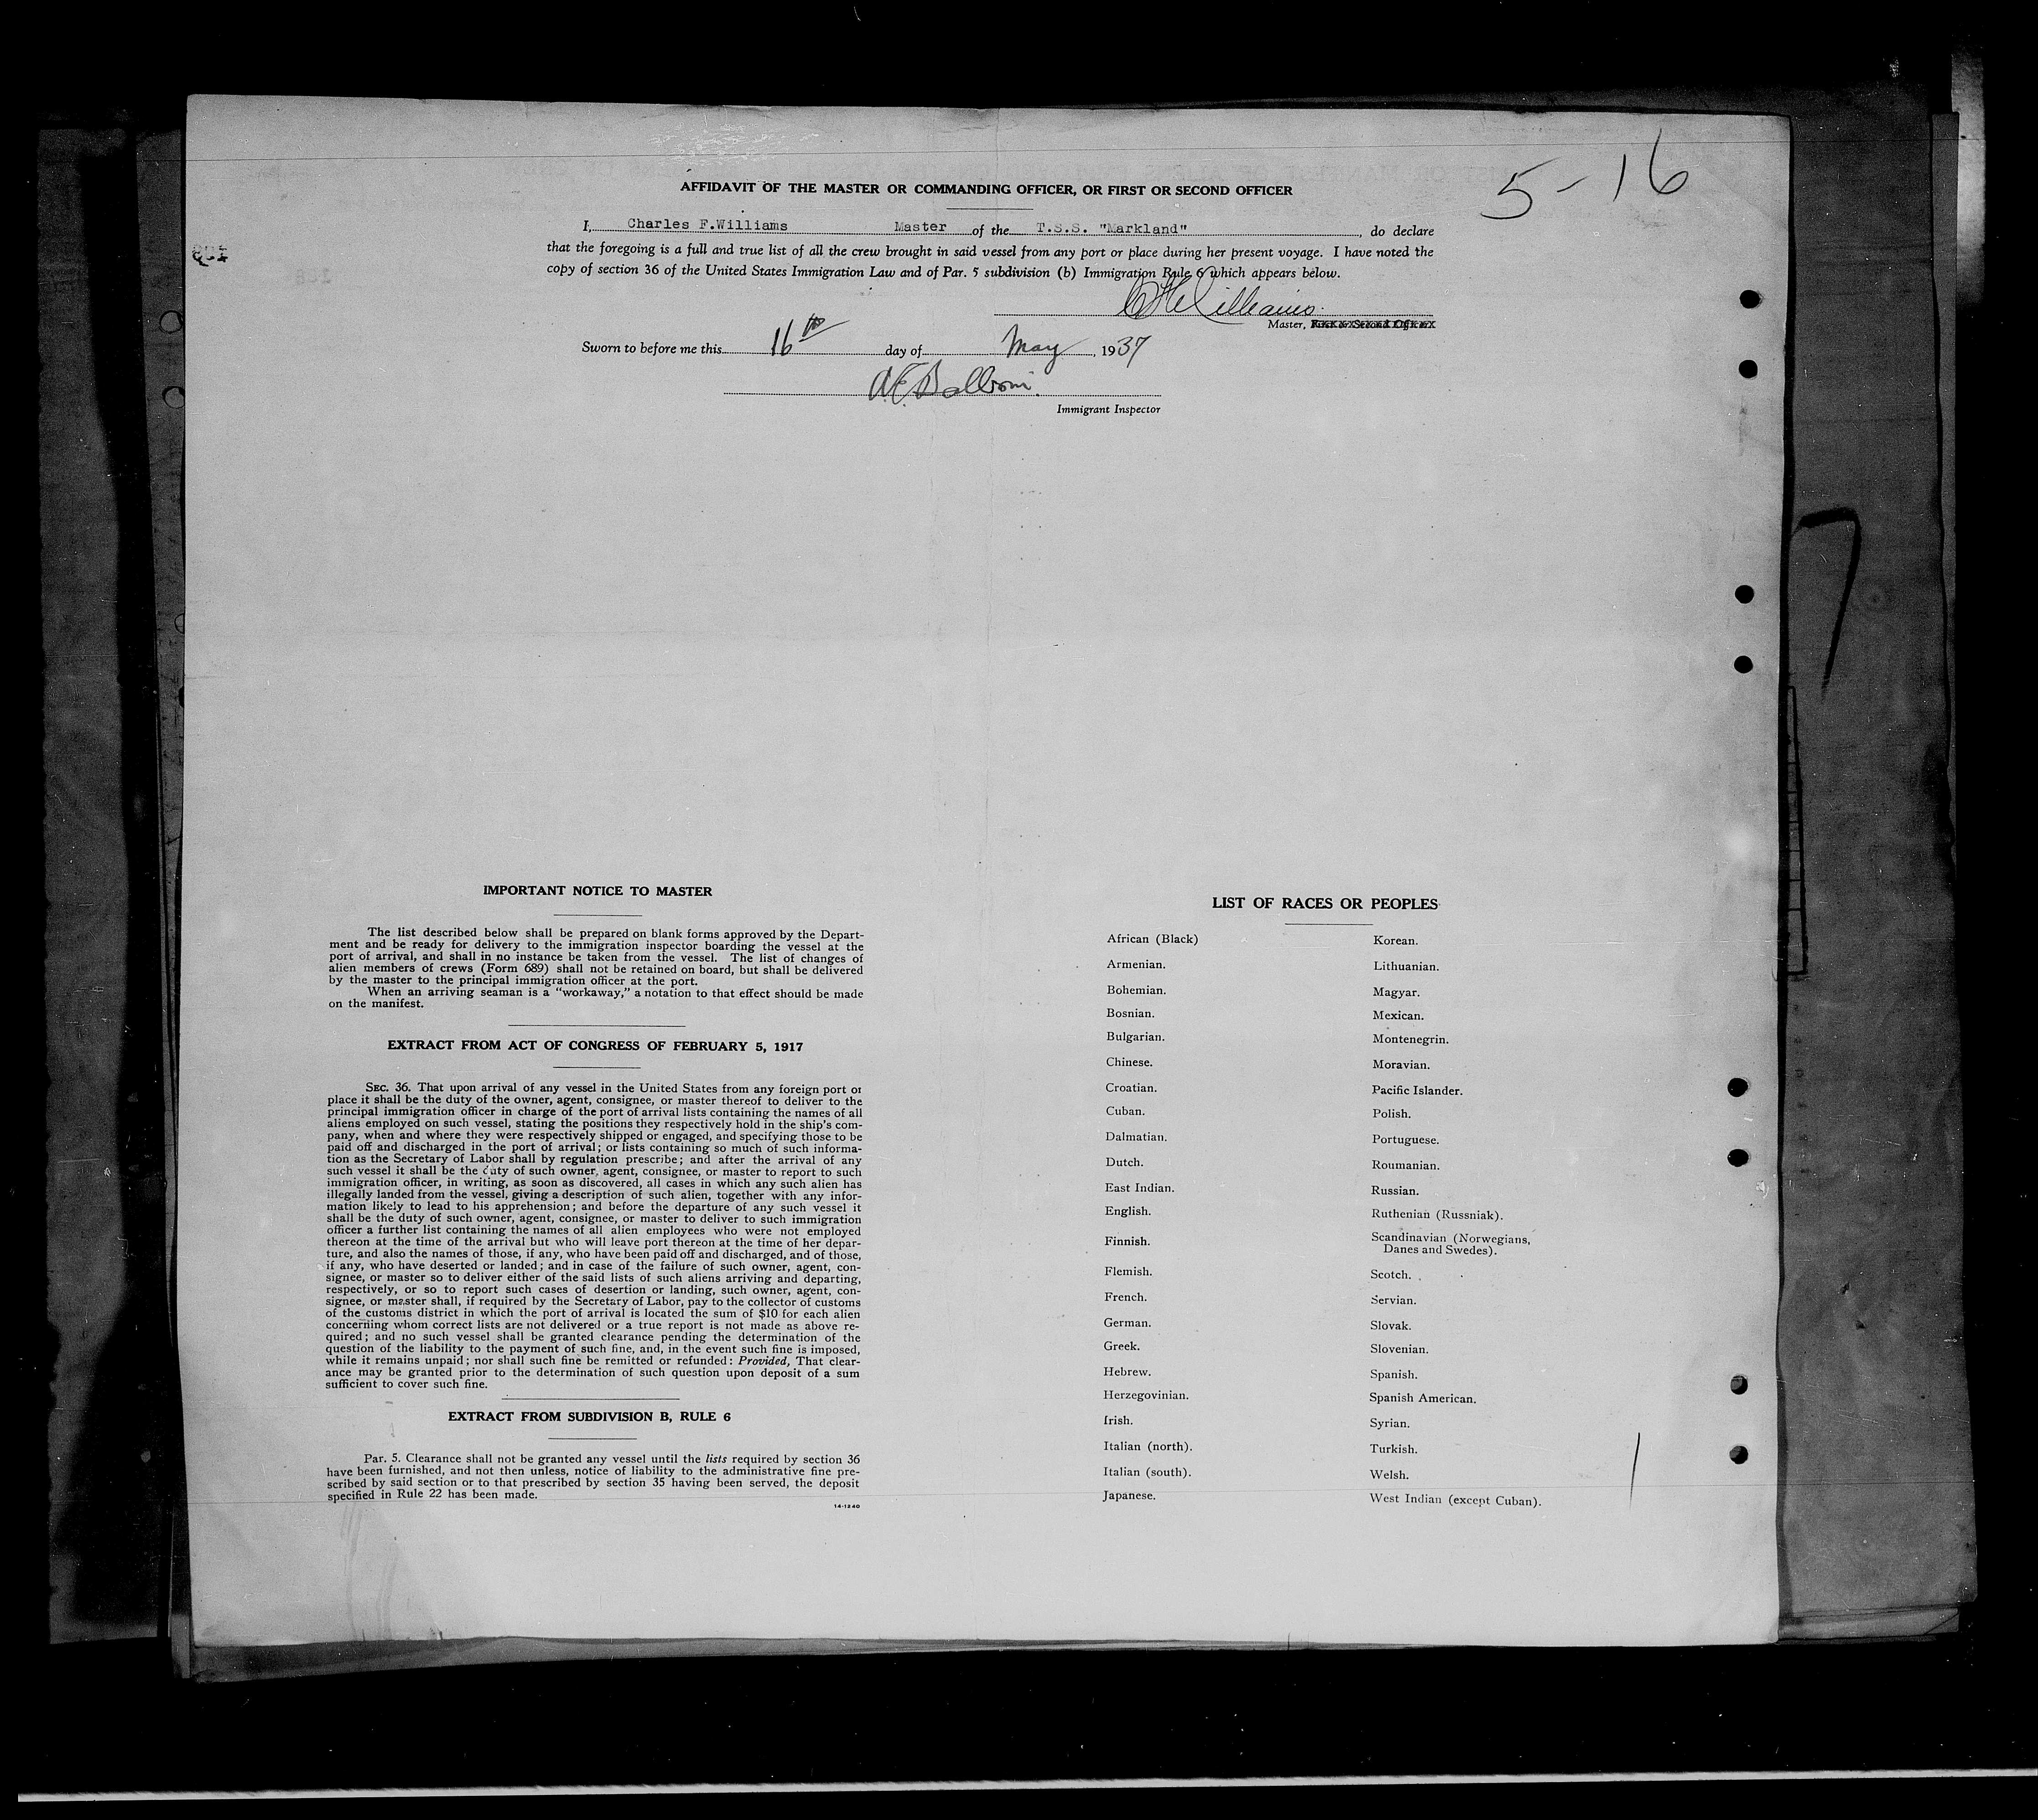 5-16
AFFIDAVIT OF THE MASTER OR COMMANDING OFFICER, OR FIRST OR SECOND OFFICER
I, Charles F.Williams Master of the T.S.S. "Markland", do declare
that the foregoing is a full and true list of all the crew brought in said vessel from any port or place during her present voyage. I have noted the
copy of section 36 of the United States Immigration Law and of Par. 5 subdivision (b) Immigration Rule 6 which appears below.
CF Williams
Master, First or Second Officer
Sworn to before me this 16th day of May, 1937
Immigrant Inspector
IMPORTANT NOTICE TO MASTER
The list described below shall be prepared on blank forms approved by the Depart-
ment and be ready for delivery to the immigration inspector boarding the vessel at the
port of arrival, and shall in no instance be taken from the vessel. The list of changes of
alien members of crews (Form 689) shall not be retained on board, but shall be delivered
by the master to the principal immigration officer at the port.
When an arriving seaman is a "workaway," a notation to that effect should be made
on the manifest.
EXTRACT FROM ACT OF CONGRESS OF FEBRUARY 5, 1917
SEC. 36. That upon arrival of any vessel in the United States from any foreign port or
place it shall be the duty of the owner, agent, consignee, or master thereof to deliver to the
principal immigration officer in charge of the port of arrival lists containing the names of all
aliens employed on such vessel, stating the positions they respectively hold in the ship's com-
pany, when and where they were respectively shipped or engaged, and specifying those to be
paid off and discharged in the port of arrival; or lists containing so much of such informa-
tion as the Secretary of Labor shall by regulation prescribe; and after the arrival of any
such vessel it shall be the duty of such owner, agent, consignee, or master to report to such
immigration officer, in writing, as soon as discovered, all cases in which any such alien has
illegally landed from the vessel, giving a description of such alien, together with any infor-
mation likely to lead to his apprehension; and before the departure of any such vessel it
shall be the duty of such owner, agent, consignee, or master to deliver to such immigration
officer a further list containing the names of all alien employees who were not employed
thereon at the time of the arrival but who will leave port thereon at the time of her depar-
ture, and also the names of those, if any, who have been paid off and discharged, and of those,
if any, who have deserted or landed; and in case of the failure of such owner, agent, con-
signee, or master so to deliver either of the said lists of such aliens arriving and departing,
respectively, or so to report such cases of desertion or landing, such owner, agent, con-
signee, or master shall, if required by the Secretary of Labor, pay to the collector of customs
of the customs district in which the port of arrival is located the sum of $10 for each alien
concerning whom correct lists are not delivered or a true report is not made as above re-
quired; and no such vessel shall be granted clearance pending the determination of the
question of the liability to the payment of such fine, and, in the event such fine is imposed,
while it remains unpaid; nor shall such fine be remitted or refunded: Provided, That clear-
ance may be granted prior to the determination of such question upon deposit of a sum
sufficient to cover such fine.
EXTRACT FROM SUBDIVISION B, RULE 6
Par. 5. Clearance shall not be granted any vessel until the lists required by section 36
have been furnished, and not then unless, notice of liability to the administrative fine pre-
scribed by said section or to that prescribed by section 35 having been served, the deposit
specified in Rule 22 has been made.
14-1240
LIST OF RACES OR PEOPLES
African (Black)
Armenian.
Bohemian.
Bosnian.
Bulgarian.
Chinese.
Croatian.
Cuban.
Dalmatian.
Dutch.
East Indian.
English.
Finnish.
Flemish.
French.
German.
Greek.
Hebrew.
Herzegovinian.
Irish.
Italian (north).
Italian (south).
Japanese.
Korean.
Lithuanian.
Magyar.
Mexican.
Montenegrin.
Moravian.
Pacific Islander.
Polish.
Portuguese.
Roumanian.
Russian.
Ruthenian (Russniak).
Scandinavian (Norwegians,
Danes and Swedes).
Scotch.
Servian.
Slovak.
Slovenian.
Spanish.
Spanish American.
Syrian.
Turkish.
Welsh.
West Indian (except Cuban).